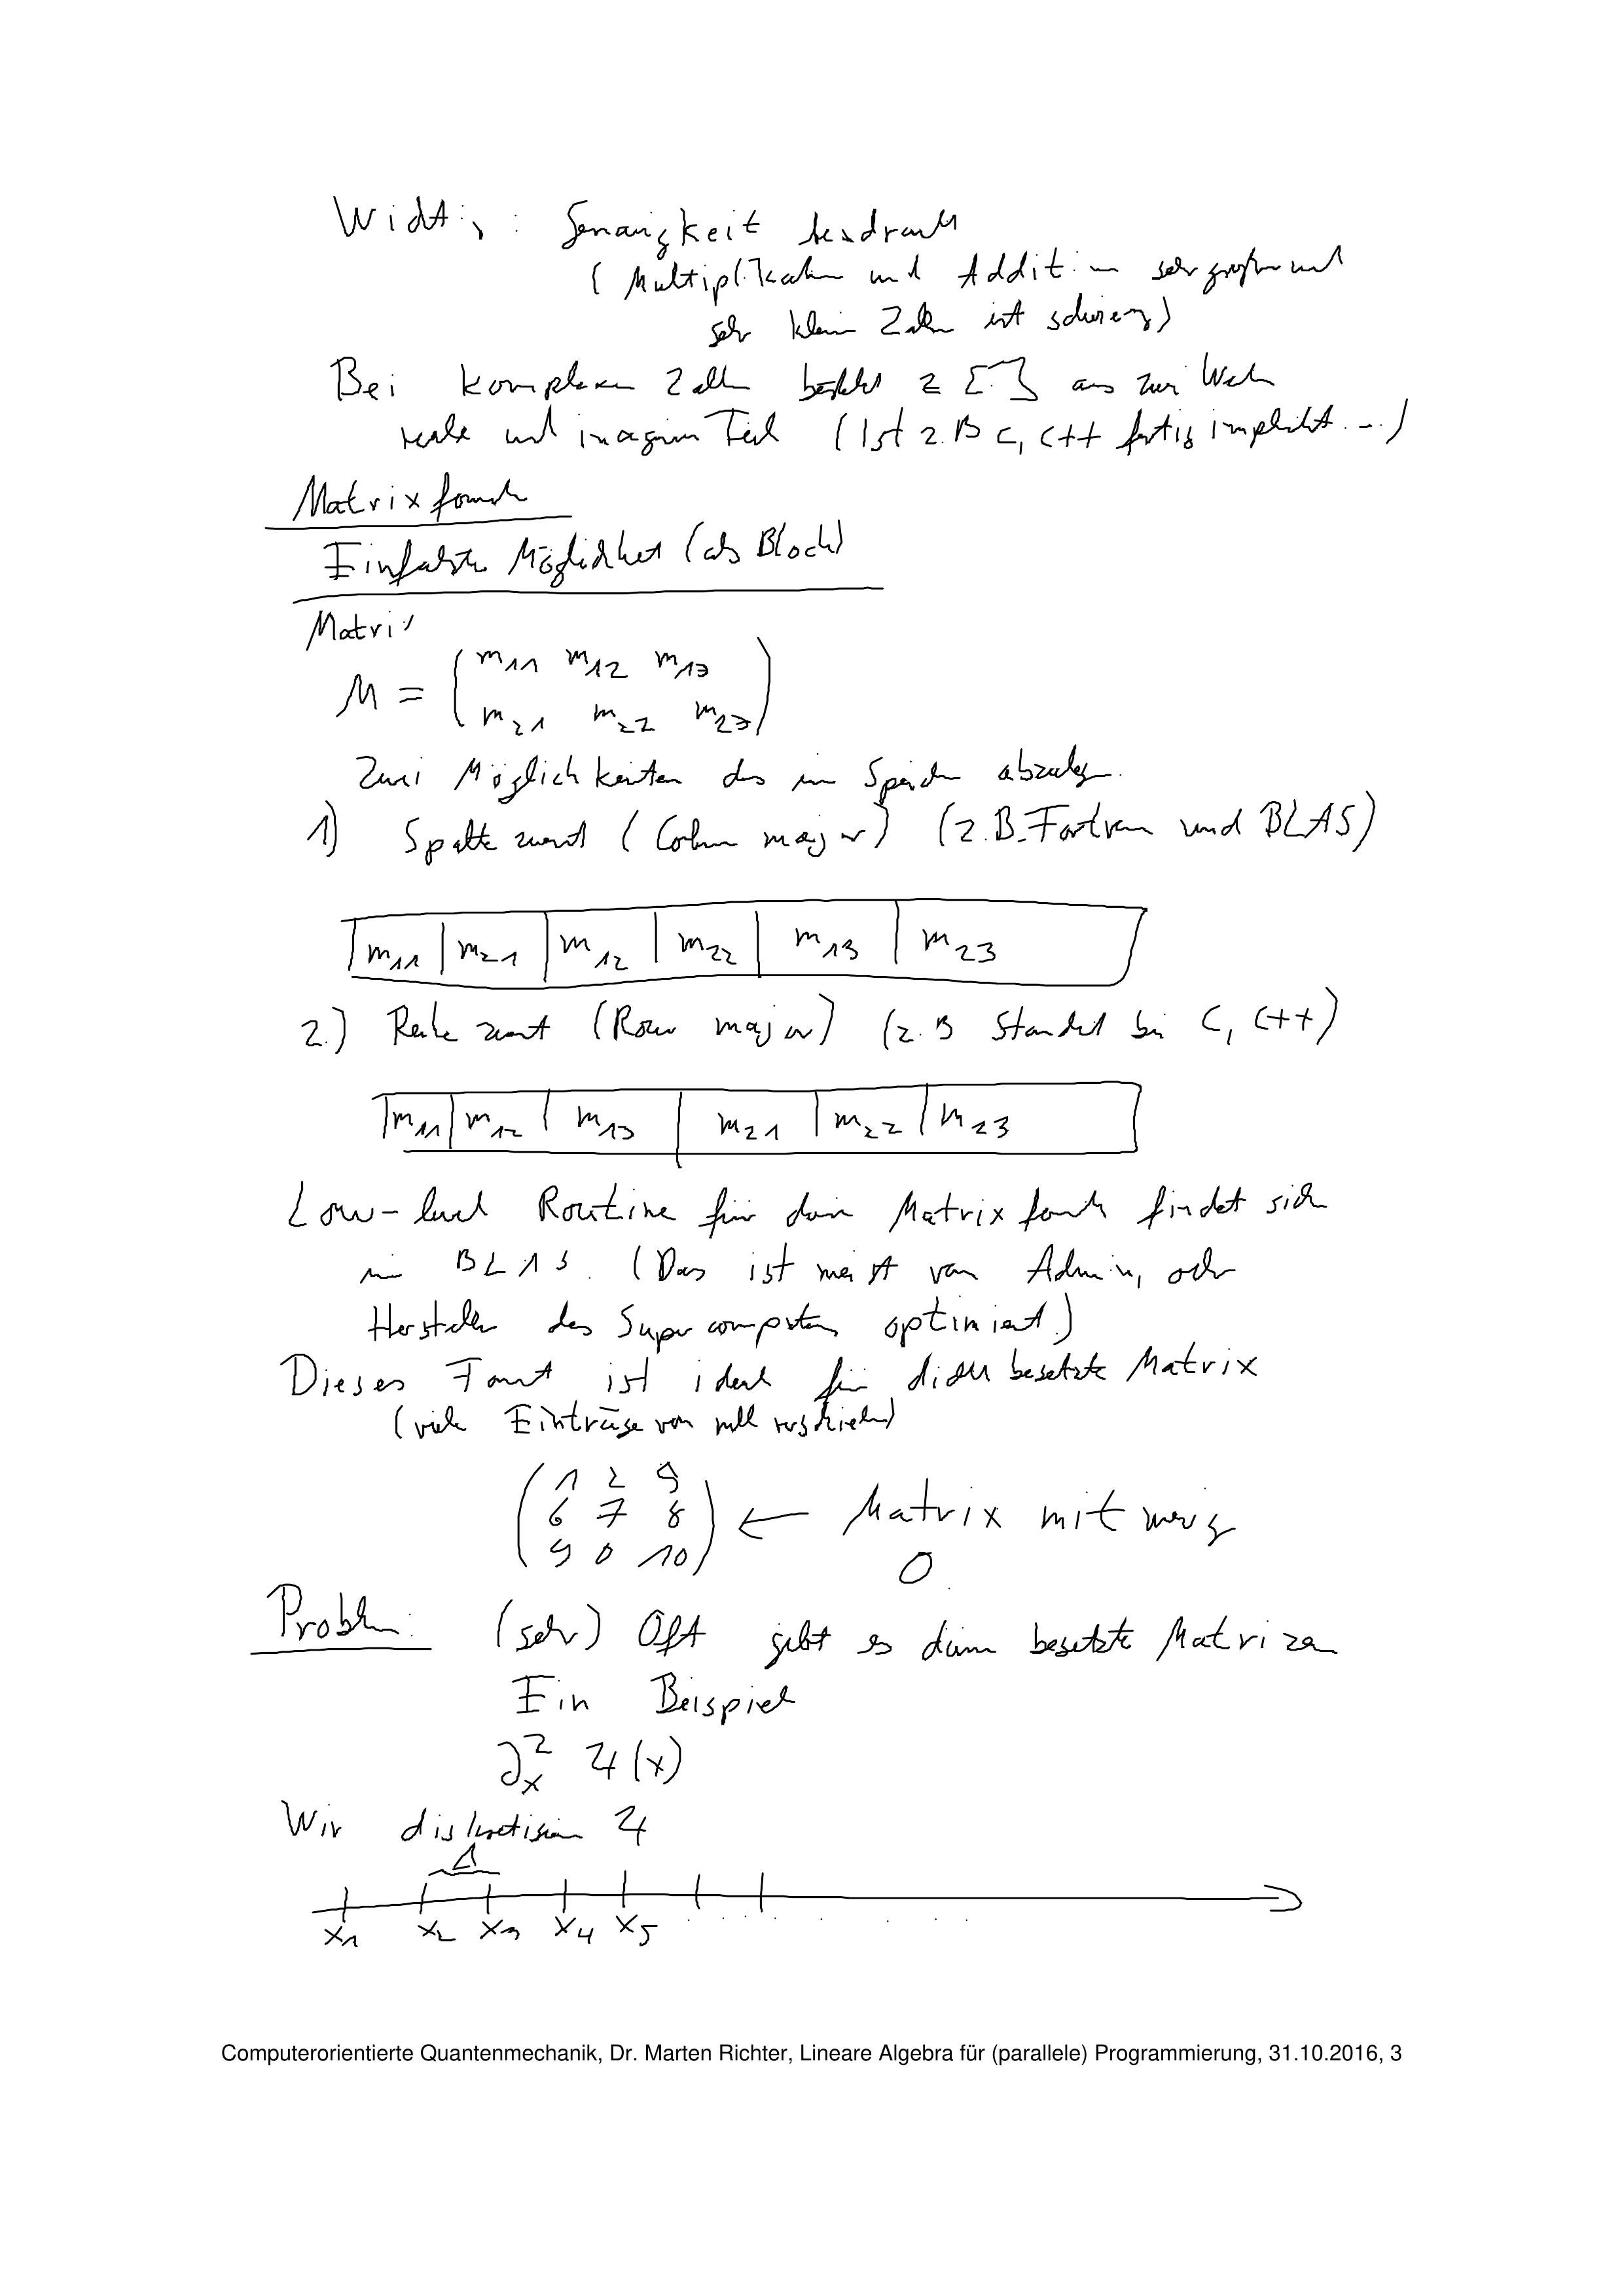 Wichtig: Genauigkeit beschränkt
(Multiplikation und Addition sehr großer und
sehr kleiner Zahlen ist schwierig)
Bei komplexen Zahlen besteht z[ ] aus zwei Werten
reale und imaginären Teil (Ist z.B C, C++ fertig implementiert...)
Matrixformate
Einfachste Möglichkeit (als Block)
Matrix
M = ( m11 m12 m13
m21 m22 m23 )
Zwei Möglichkeiten das im Speicher abzulegen.
1) Spalte zuerst (Column major) (z.B. Fortran und BLAS)
m11 | m21 | m12 | m22 | m13 | m23
2.) Reihe zuerst (Row major) (z.B Standard bei C, C++)
m11 | m12 | m13 | m21 | m22 | m23
Low-level Routine für Matrixformate findet sich
in BLAS. (Das ist meist von Admin, oder
Hersteller des Supercomputers optimiert.)
Dieses Format ist ideal für dicht besetzte Matrix
(viele Einträge von null verschieden)
( 1 2 9
6 7 8 ) ← Matrix mit wenig
9 0 10
0
Problem: (sehr) Oft gibt es dünn besetzte Matrizen
Ein Beispiel
∂x² Ψ(x)
Wir diskretisieren Ψ
Δ
x1 x2 x3 x4 x5 . . . . . . .
Computerorientierte Quantenmechanik, Dr. Marten Richter, Lineare Algebra für (parallele) Programmierung, 31.10.2016, 3